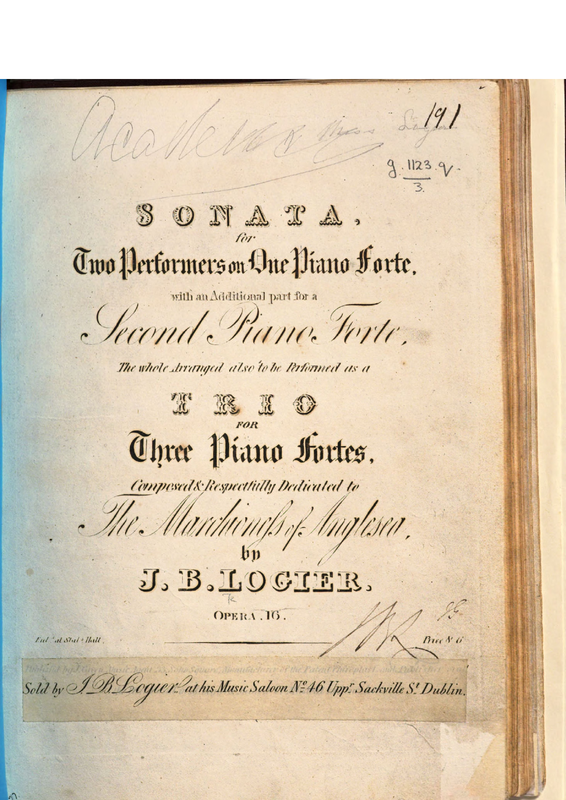 191
g. 1123. q.
3.
SONATA,
for
Two Performers on One Piano Forte,
with an Additional part for a
Second Piano Forte,
The whole Arranged also to be Performed as a
TRIO
FOR
Three Piano Fortes,
Composed & Respectfully Dedicated to
The Marchioneſs of Anglesea,
by
J. B. LOGIER.
OPERA. 16.
Ent.d at Sta.s Hall. Price
Sold by J B Logier at his Music Saloon No. 46 Uppr. Sackville St. Dublin.